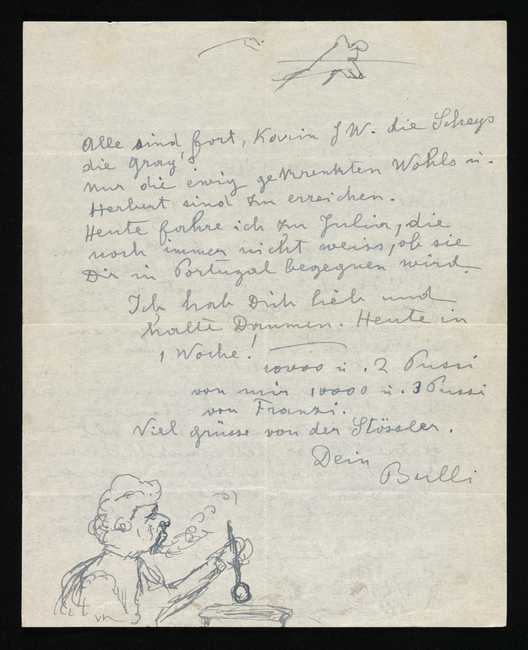 Alle sind fort, Karin J W. die Scheys
die Gray's
nur die ewig gekrenkten Wohls u.
Herbert sind zu erreichen.
Heute fahre ich zu Julia, die
noch immer nicht weiss, ob sie
Dir in Portugal begegnen wird.
Ich hab Dich lieb und
halte Daumen. Heute in
1 Woche!
10000 u. 2 Pussi
von mir 10000 u. 3 Pussi
von Franzi.
Viel grüsse von der Stössler.
Dein
Bulli